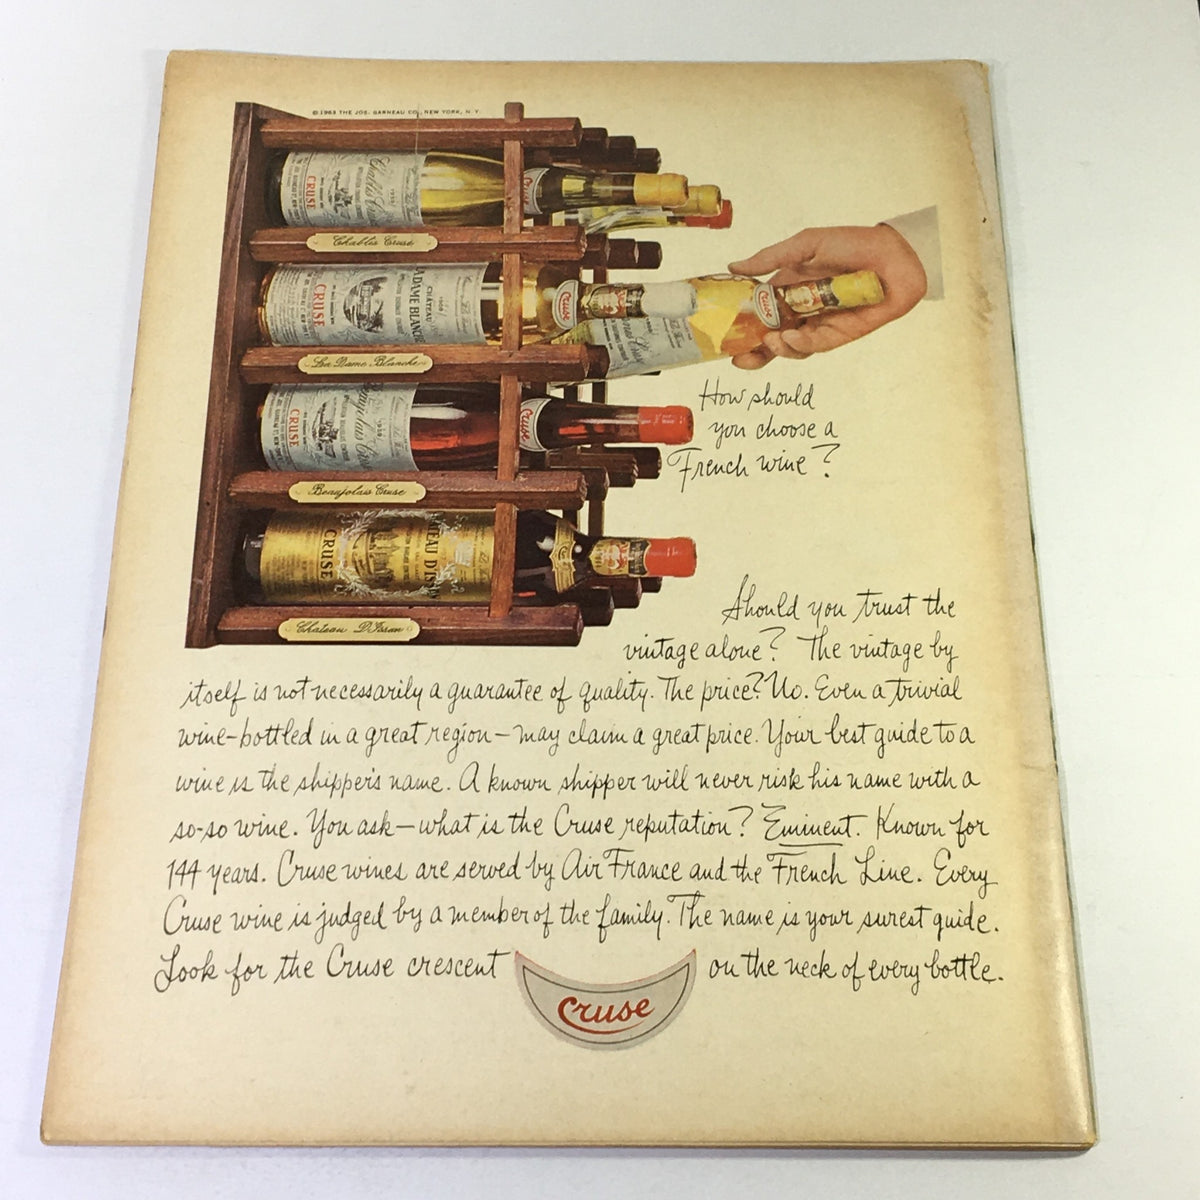 ©1963 THE JOS. GARNEAU CO., NEW YORK, N. Y.
CRUSE
Chablis Cruse
Cruse
Chablis Cruse
CRUSE
LA DAME BLANCHE
CHÂTEAU
1960
Cruse
Cruse
La Dame Blanche
CRUSE
Beaujolais Cruse
Cruse
Beaujolais Cruse
CRUSE
Chateau D'Issan
How should
you choose a
French wine?
Should you trust the
vintage alone? The vintage by
itself is not necessarily a guarantee of quality. The price? No. Even a trivial
wine-bottled in a great region-may claim a great price. Your best guide to a
wine is the shipper's name. A known shipper will never risk his name with a
so-so wine. You ask-what is the Cruse reputation? Eminent. Known for
144 years. Cruse wines are served by Air France and the French Line. Every
Cruse wine is judged by a member of the family. The name is your surest guide.
Look for the Cruse crescent on the neck of every bottle.
Cruse